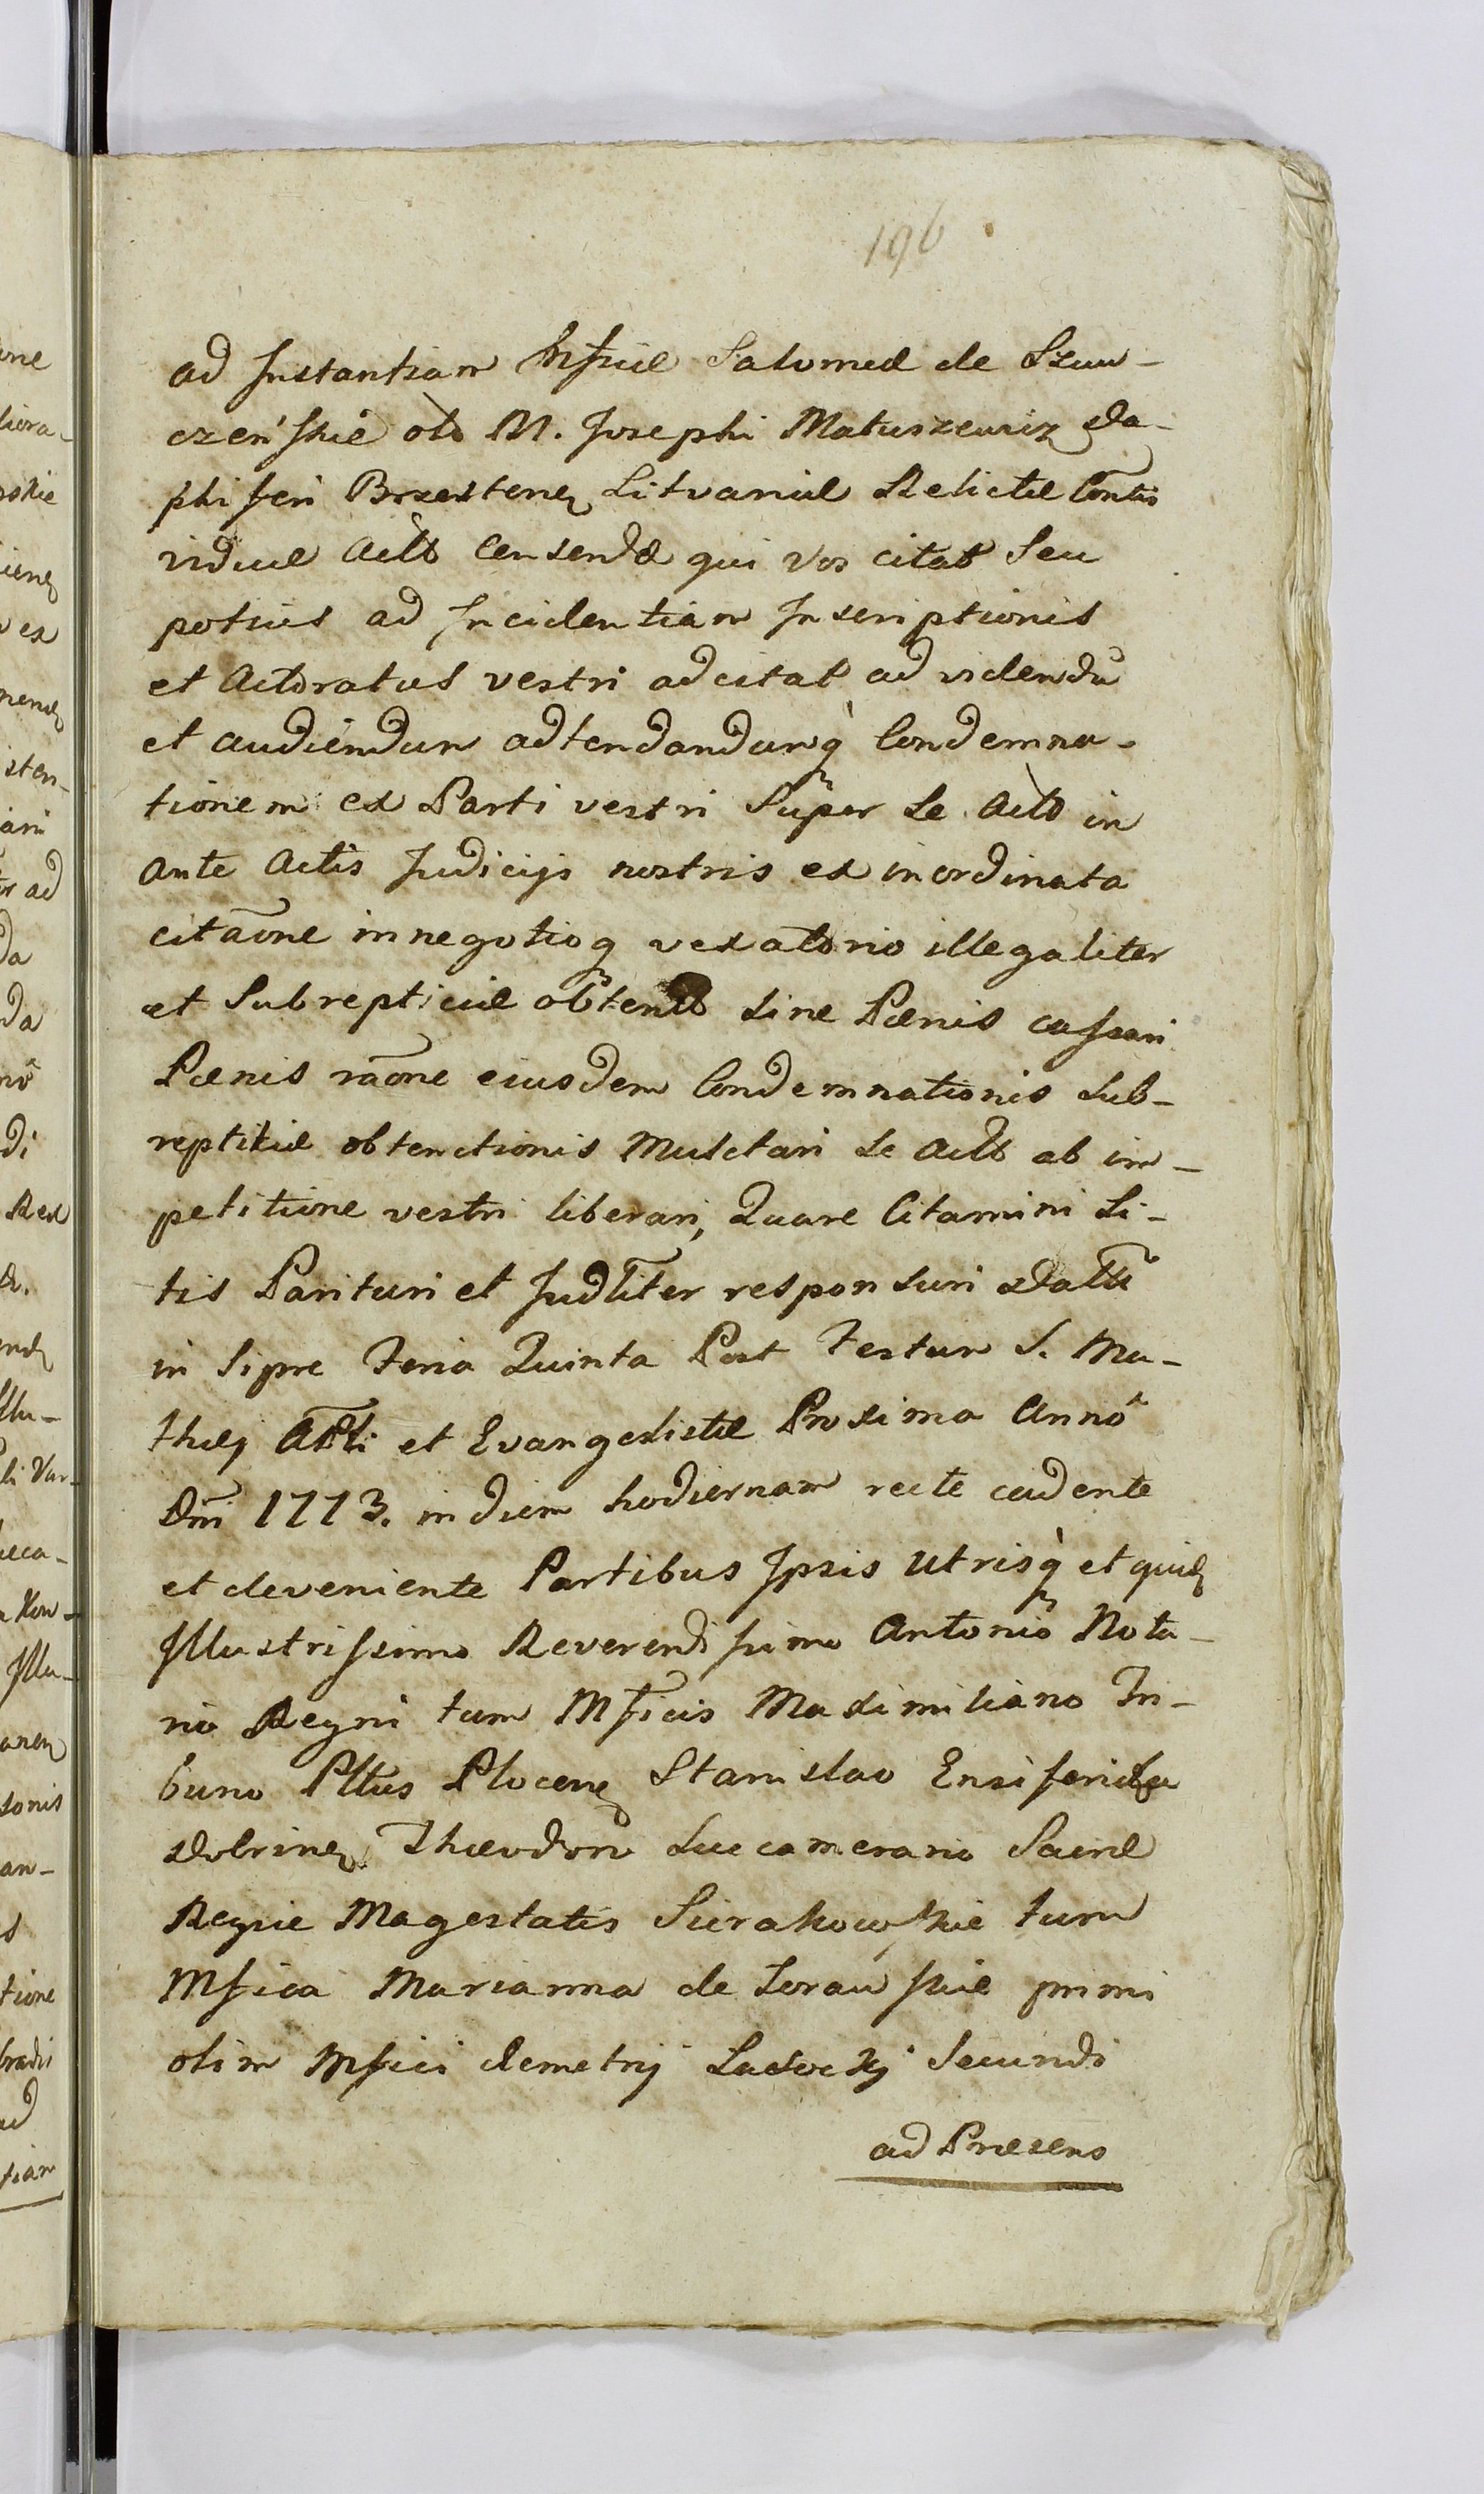 196
ad Instantiam Mficæ Salomeæ de Szuw-
czeńskie olb M. Josephi Matuszewiz Da-
phiferi Brzesten Litvaniæ Relictæ Contis
viduæ Actb Censendæ qui vos citat Seu
potius ad Incidentiam Inscriptionis
et Actoratus vestri adcitat ad videndū
et audiendum adtendandumq̀ Condemna-
tionem ex Parti vestri Super Se Actb in
Ante Actis Judicijs nostris ex inordinata
citãone in negotioq vexatorio illegaliter
et Subrepticiæ obtentb Sine Pœnis cassari
Pœnis rãone eiusdem Condemnationis Sub-
reptitiæ obtenctionis Mulctari Se Actb ab im-
petitione vestri liberari, Quare Citamini Li-
tis Parituri et Judliter responsuri Dattū
in Sipre Feria Quinta Post Festum S. Ma-
thæj Appli et Evangelistæ Proxima Anno
Dni 1773. in diem hodiernam recte cadente
et deveniente Partibus Ipsis Utrisq̀ et quid
Illustrissimo Reverendissimo Antonio Nota-
rio Regni tum Mficis Maximiliano Tri-
buno Plltus Plocen Stanislao Ensifero
Dobrinen Theodoro Succamerario Sacræ
Regiæ Magestatis Sierakowskie tum
Mfica Marianna de Zorawskie primi
olim Mfici demetrij Lasockj Secundi
ad Præsens